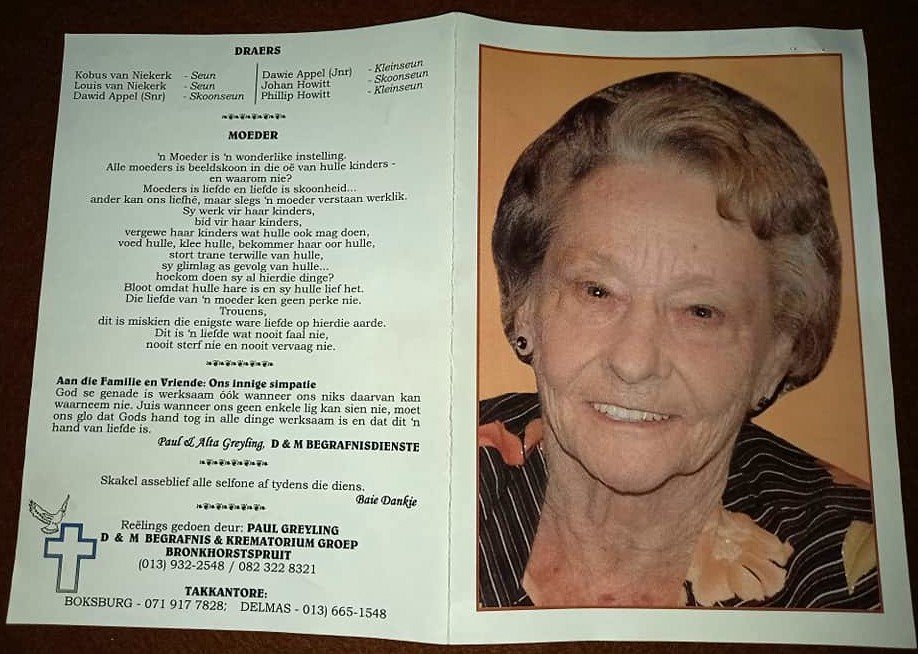 DRAERS
Kobus van Niekerk - Seun
Louis van Niekerk - Seun
Dawid Appel (Snr) - Skoonseun
Dawie Appel (Jnr) - Kleinseun
Johan Howitt - Skoonseun
Phillip Howitt - Kleinseun
MOEDER
'n Moeder is 'n wonderlike instelling.
Alle moeders is beeldskoon in die oë van hulle kinders -
en waarom nie?
Moeders is liefde en liefde is skoonheid...
ander kan ons liefhê, maar slegs 'n moeder verstaan werklik.
Sy werk vir haar kinders,
bid vir haar kinders,
vergewe haar kinders wat hulle ook mag doen,
voed hulle, klee hulle, bekommer haar oor hulle,
stort trane terwille van hulle,
sy glimlag as gevolg van hulle...
hoekom doen sy al hierdie dinge?
Bloot omdat hulle hare is en sy hulle lief het.
Die liefde van 'n moeder ken geen perke nie.
Trouens,
dit is miskien die enigste ware liefde op hierdie aarde.
Dit is 'n liefde wat nooit faal nie,
nooit sterf nie en nooit vervaag nie.
Aan die Familie en Vriende: Ons innige simpatie
God se genade is werksaam óók wanneer ons niks daarvan kan
waarneem nie. Juis wanneer ons geen enkele lig kan sien nie, moet
ons glo dat Gods hand tog in alle dinge werksaam is en dat dit 'n
hand van liefde is.
Paul & Alta Greyling, D & M BEGRAFNISDIENSTE
Skakel asseblief alle selfone af tydens die diens.
Baie Dankie
Reëlings gedoen deur: PAUL GREYLING
D & M BEGRAFNIS & KREMATORIUM GROEP
BRONKHORSTSPRUIT
(013) 932-2548 / 082 322 8321
TAKKANTORE:
BOKSBURG - 071 917 7828; DELMAS - 013) 665-1548